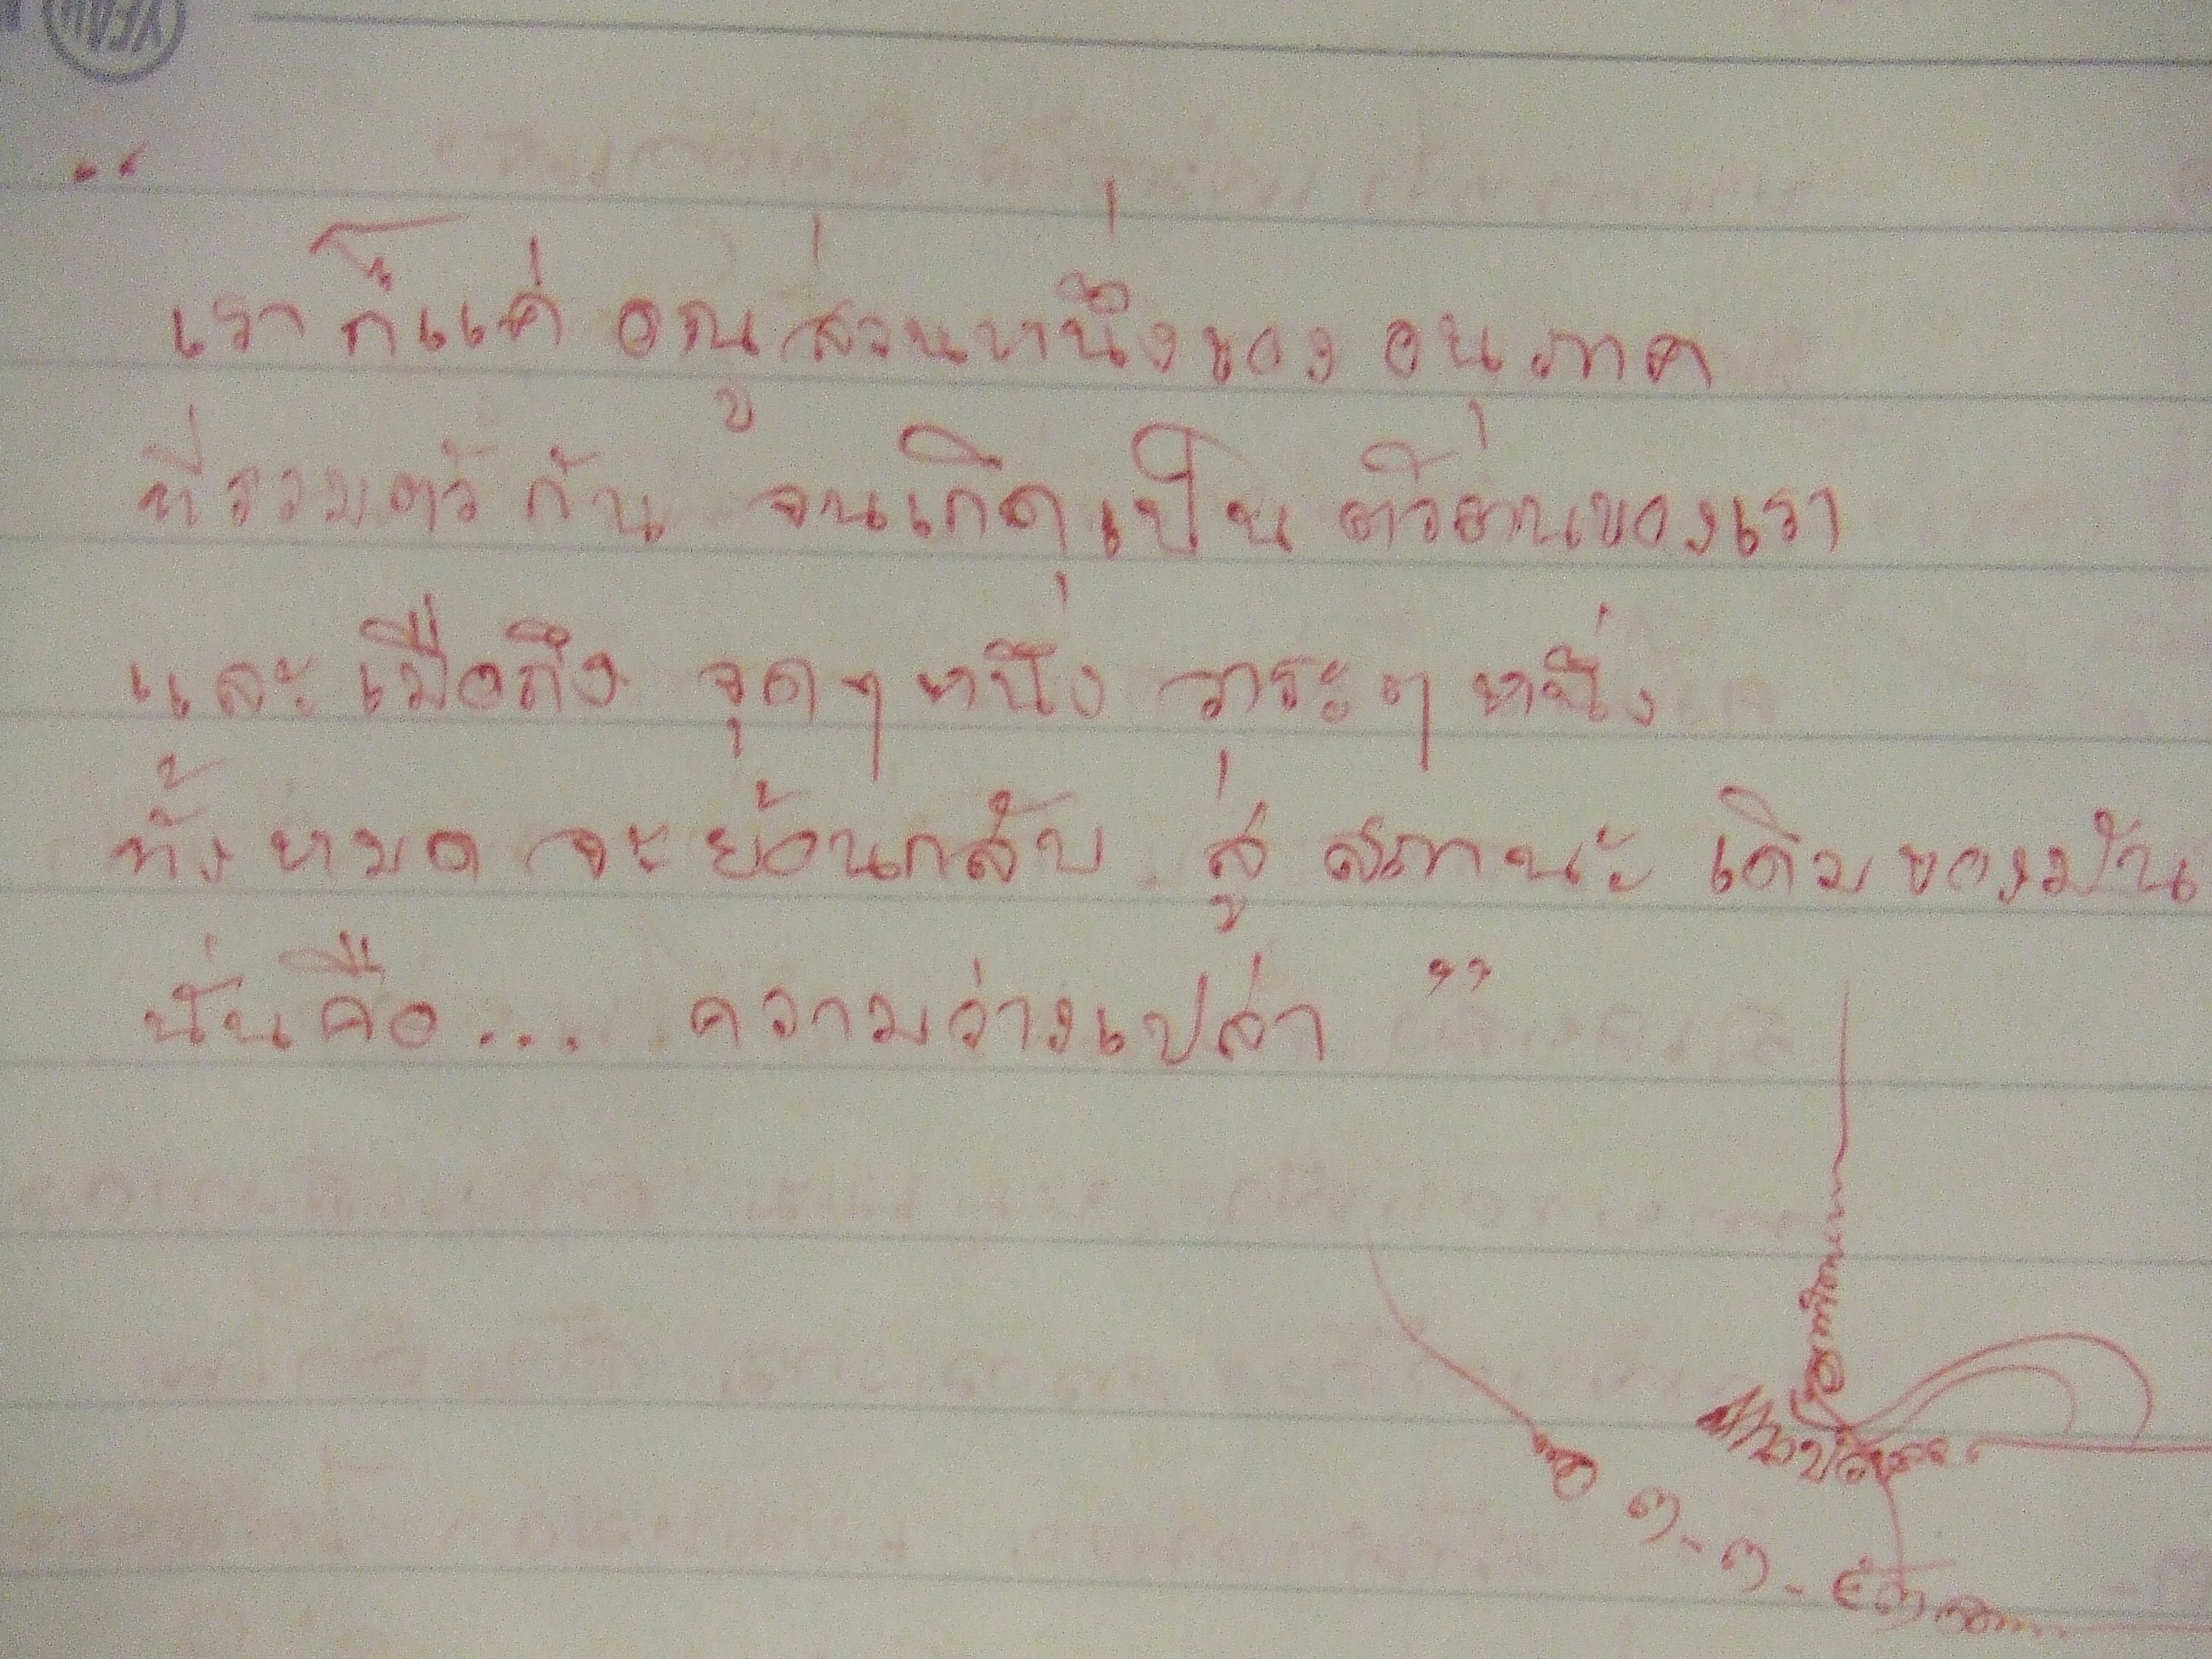 “
เราก็แค่ อณู ส่วนหนึ่งของ อนุภาค
ที่รวมตัว กัน จนเกิด เป็น ตัวตนของเรา
และ เมื่อถึง จุดๆ หนึ่ง วาระๆ หนึ่ง
ทั้งหมด จะ ย้อนกลับ สู่ สถานะ เดิมของมัน
นั่น คือ... ความว่างเปล่า ”